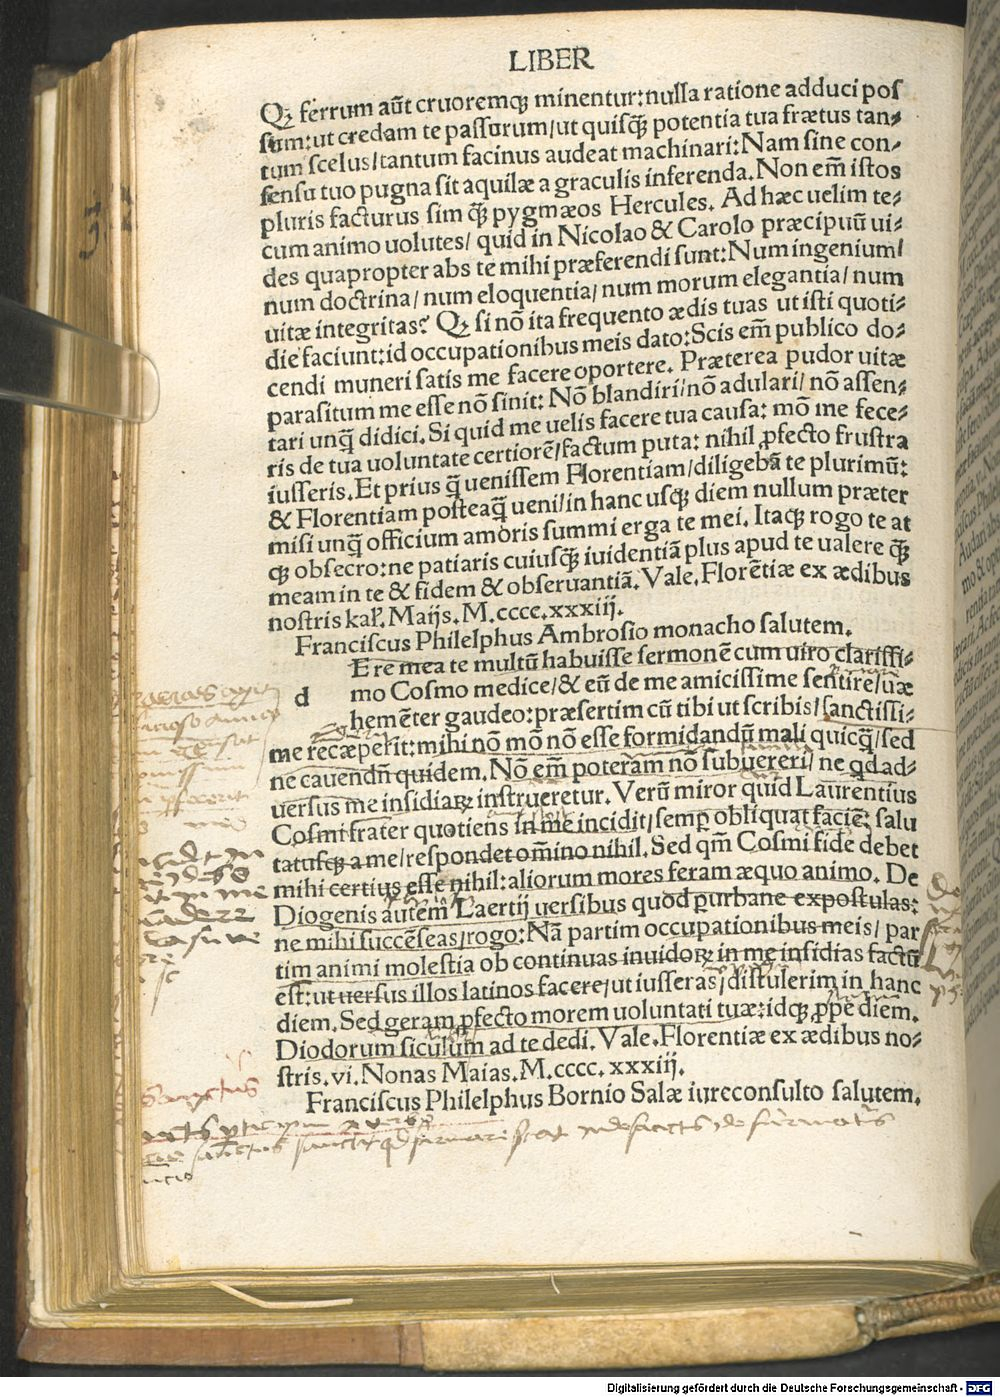 LIBER
Qꝫ ferrum aūt cruoremqꝫ minentur: nulla ratione adduci poſ
ſum: ut credam te paſſurum/ut quiſq̄ꝫ potentia tua frætus tan⸗
tum ſcelus/tantum facinus audeat machinari: Nam ſine con⸗
ſenſu tuo pugna ſit aquilæ a graculis inferenda. Non em̄ iſtos
pluris facturus ſim q̄ꝫ pygmæos Hercules. Ad hæc uelim te⸗
cum animo uolutes/ quid in Nicolao & Carolo præcipuū ui⸗
des quapropter abs te mihi præferendi ſunt: Num ingenium/
num doctrina/ num eloquentia/ num morum elegantia/ num
uitæ integritas? Qꝫ ſi nō ita frequento ædis tuas ut iſti quoti⸗
die faciunt: id occupationibus meis dato: Scis em̄ publico do⸗
cendi muneri ſatis me facere oportere. Præterea pudor uitæ
paraſitum me eſſe nō ſinit: Nō blandiri/nō adulari/ nō aſſen⸗
tari unq̄ didici. Si quid me uelis facere tua cauſa: mō me fece⸗
ris de tua uoluntate certiorē/factum puta: nihil ꝓfecto fruſtra
iuſſeris. Et prius q̄ ueniſſem Florentiam/diligebā te plurimū:
& Florentiam poſteaq̄ ueni/in hanc uſqꝫ diem nullum præter
miſi unq̄ officium amoris ſummi erga te mei. Itaqꝫ rogo te at
qꝫ obſecro: ne patiaris cuiuſq̄ꝫ iuidentiā plus apud te ualere q̄ꝫ
meam in te & fidem & obſeruantiā. Vale. Florētiæ ex ædibus
noſtris kaƚ. Maijs. M.cccc.xxxiij.
Franciſcus Philelphus Ambroſio monacho ſalutem.
d Ere mea te multū habuiſſe ſermonē cum uiro clariſſi⸗
mo Coſmo medice/& eū de me amiciſſime ſentire/uæ
hemēter gaudeo: præſertim cū tibi ut ſcribis/ſanctiſſi⸗
me recæperit: mihi nō mō nō eſſe formidandū mali quicq̄/ſed
ne cauendū quidem. Nō em̄ poteram nō ſubuereri/ ne qd ad⸗
uersus me inſidiaꝝ inſtrueretur. Verū miror quid Laurentius
Coſmi frater quotiens in me incidit/ſemꝑ obliquat faciē: ſalu
tatuſqꝫ a me/reſpondet om̄ino nihil. Sed qm̄ Coſmi fide debet
mihi certius eſſe nihil: aliorum mores feram æquo animo. De
Diogenis autem Laertij uerſibus quod ꝑurbane expoſtulas:
ne mihi ſuccēſeas/rogo: Nā partim occupationibus meis/ par
tim animi moleſtia ob continuas inuidoꝝ in me inſidias factū
eſt: ut uerſus illos latinos facere/ut iuſſeras/diſtulerim in hanc
diem. Sed geram ꝓfecto morem uoluntati tuæ: idqꝫ ꝓpe diem.
Diodorum ſiculum ad te dedi. Vale. Florentiæ ex ædibus no⸗
ſtris. vi. Nonas Maias. M.cccc. xxxiij.
Franciſcus Philelphus Bornio Salæ iureconſulto ſalutem.
Digitalisierung gefördert durch die Deutsche Forschungsgemeinschaft - DFG